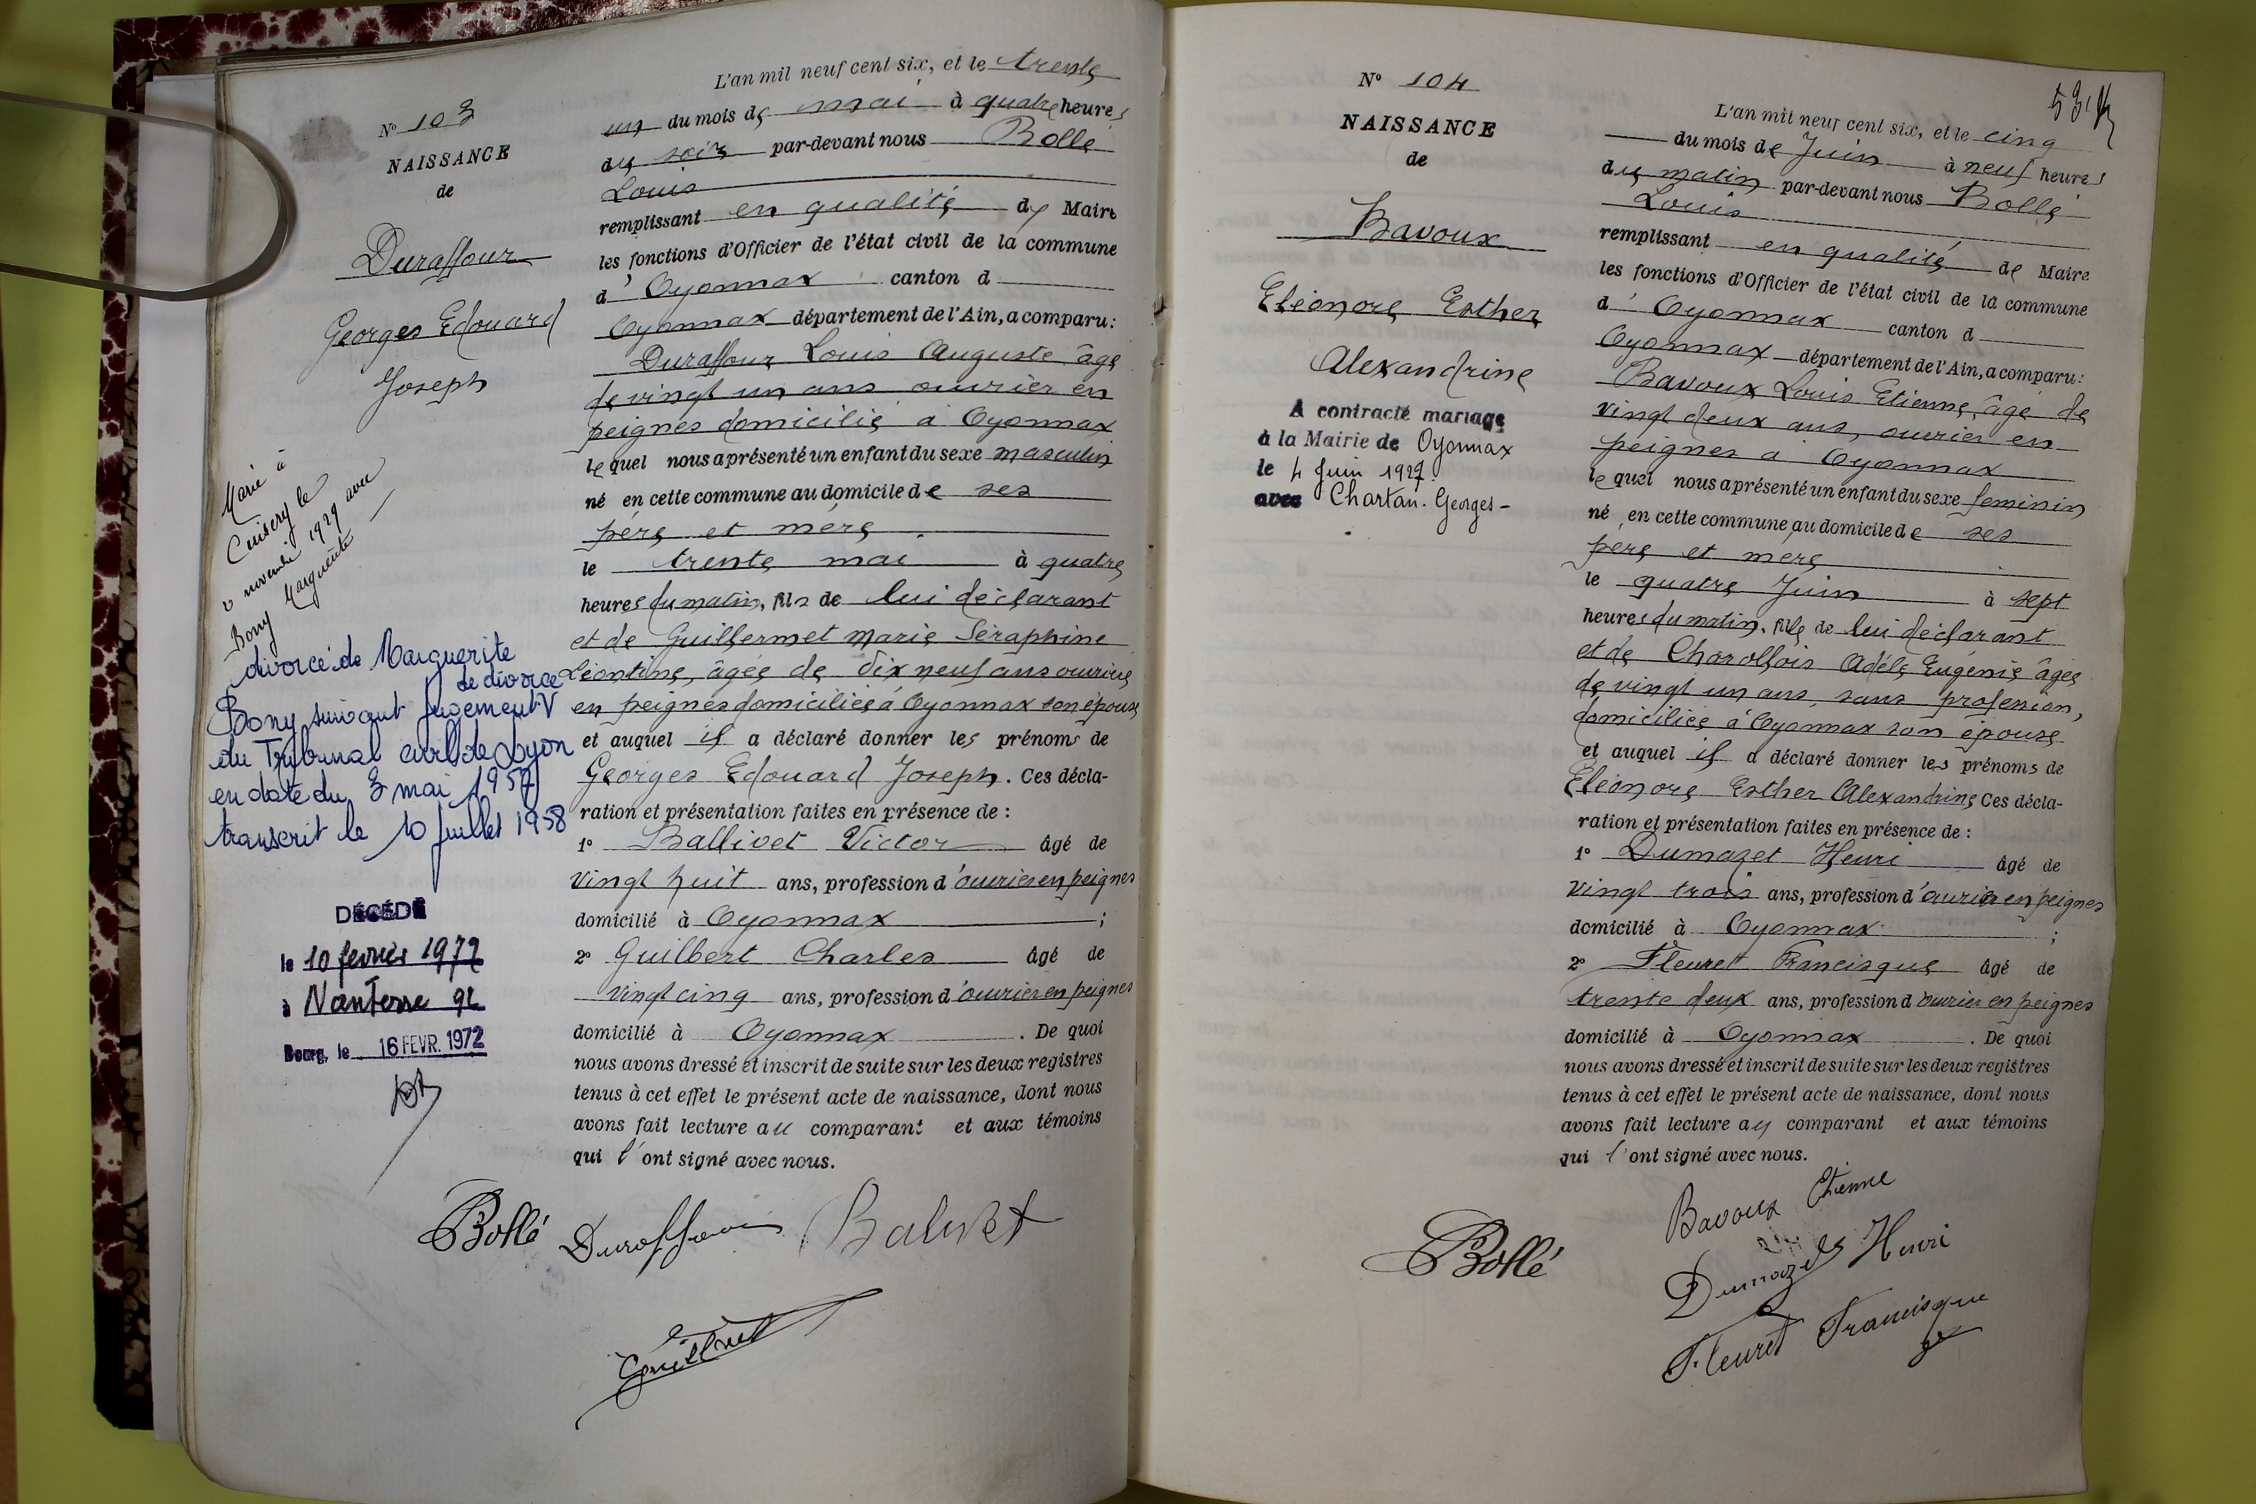 N° 103
NAISSANCE
de
Duraffour
Georges Edouard
Joseph
Marié à
Cuisery le
novembre 1929 avec
Bony Marguerite
divorcé de Marguerite
de divorce
Bony suivant jugement V
du Tribunal civil de Lyon
en date du 3 mai 1957
transcrit le 10 juillet 1958
DÉCÉDÉ
le 10 fevrier 1972
à Nanterre 92
Bourg, le 16 FEVR. 1972
L'an mil neuf cent six, et le trente
un du mois de mai à quatre heures
du soir par-devant nous Bollé
Louis
remplissant en qualité de Maire
les fonctions d'Officier de l'état civil de la commune
d' Oyonnax canton d
Oyonnax département de l'Ain, a comparu:
Duraffour Louis Auguste âgé
de vingt un ans ouvrier en
peignes domicilié à Oyonnax
lequel nous a présenté un enfant du sexe masculin
né en cette commune au domicile de ses
père et mère
le trente mai à quatre
heures du matin, fils de lui déclarant
et de Guillermet Marie Séraphine
Léontine, âgée de dix neuf ans ouvrière
en peignes domiciliée à Oyonnax son épouse
et auquel il a déclaré donner les prénoms de
Georges Edouard Joseph. Ces décla-
ration et présentation faites en présence de :
1° Ballivet Victor âgé de
vingt huit ans, profession d'ouvrier en peignes
domicilié à Oyonnax ;
2° Guilbert Charles âgé de
vingt cinq ans, profession d'ouvrier en peignes
domicilié à Oyonnax . De quoi
nous avons dressé et inscrit de suite sur les deux registres
tenus à cet effet le présent acte de naissance, dont nous
avons fait lecture au comparant et aux témoins
qui l'ont signé avec nous.
Bollé Duraffour Balivet
Guilbert
N° 104
NAISSANCE
de
Bavoux
Eléonore Esther
Alexandrine
A contracté mariage
à la Mairie de Oyonnax
le 4 Juin 1927.
avec Chartan. Georges -
53
L'an mil neuf cent six, et le cinq
du mois de Juin à neuf heures
du matin par-devant nous Bollé
Louis
remplissant en qualité de Maire
les fonctions d'Officier de l'état civil de la commune
d' Oyonnax canton d
Oyonnax département de l'Ain, a comparu:
Bavoux Louis Etienne, âgé de
vingt deux ans, ouvrier en
peignes à Oyonnax
lequel nous a présenté un enfant du sexe feminin
né en cette commune au domicile de ses
père et mère
le quatre Juin à sept
heures du matin, fille de lui déclarant
et de Charollois Adèle Eugénie âgée
de vingt un ans, sans profession,
domiciliée à Oyonnax son épouse
et auquel il a déclaré donner les prénoms de
Eléonore Esther Alexandrine Ces décla-
ration et présentation faites en présence de :
1° Dumazet Henri âgé de
vingt trois ans, profession d'ouvrier en peignes
domicilié à Oyonnax ;
2° Fleuret Francisque âgé de
trente deux ans, profession d'ouvrier en peignes
domicilié à Oyonnax . De quoi
nous avons dressé et inscrit de suite sur les deux registres
tenus à cet effet le présent acte de naissance, dont nous
avons fait lecture au comparant et aux témoins
qui l'ont signé avec nous.
Bavoux Etienne
Bollé
Dumazet Henri
Fleuret Francisque